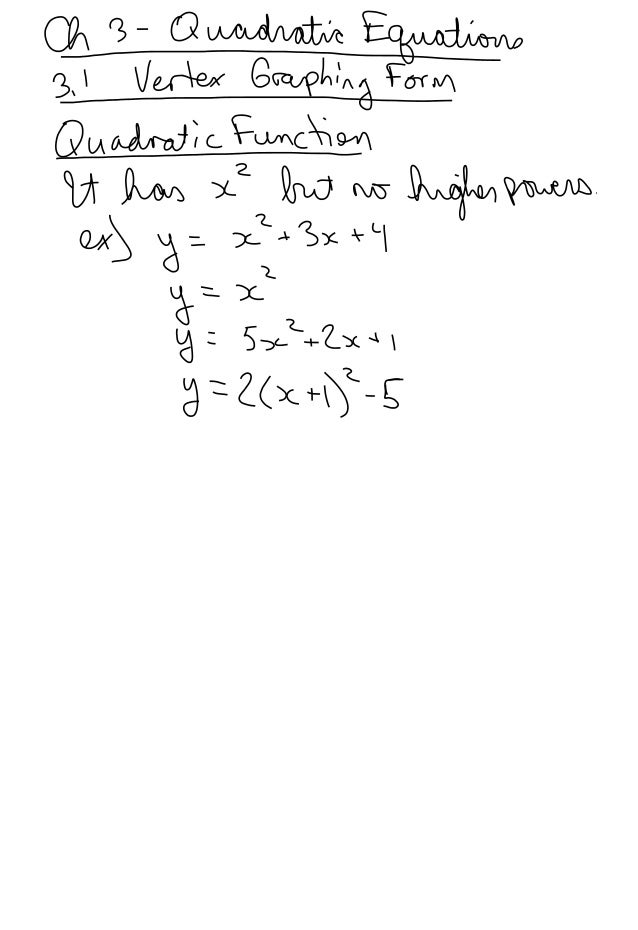 Ch 3 - Quadratic Equations
3.1 Vertex Graphing Form
Quadratic Function
It has x² but no higher powers.
ex) y = x² + 3x + 4
y = x²
y = 5x² + 2x + 1
y = 2(x+1)² - 5